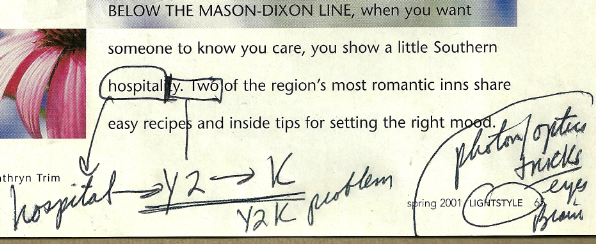 BELOW THE MASON-DIXON LINE, when you want
someone to know you care, you show a little Southern
hospitality. Two of the region's most romantic inns share
easy recipes and inside tips for setting the right mood.
thryn Trim
hospital → Y2 → K
Y2K problem
photon/optics
eyes
Brain
spring 2001 LIGHTSTYLE